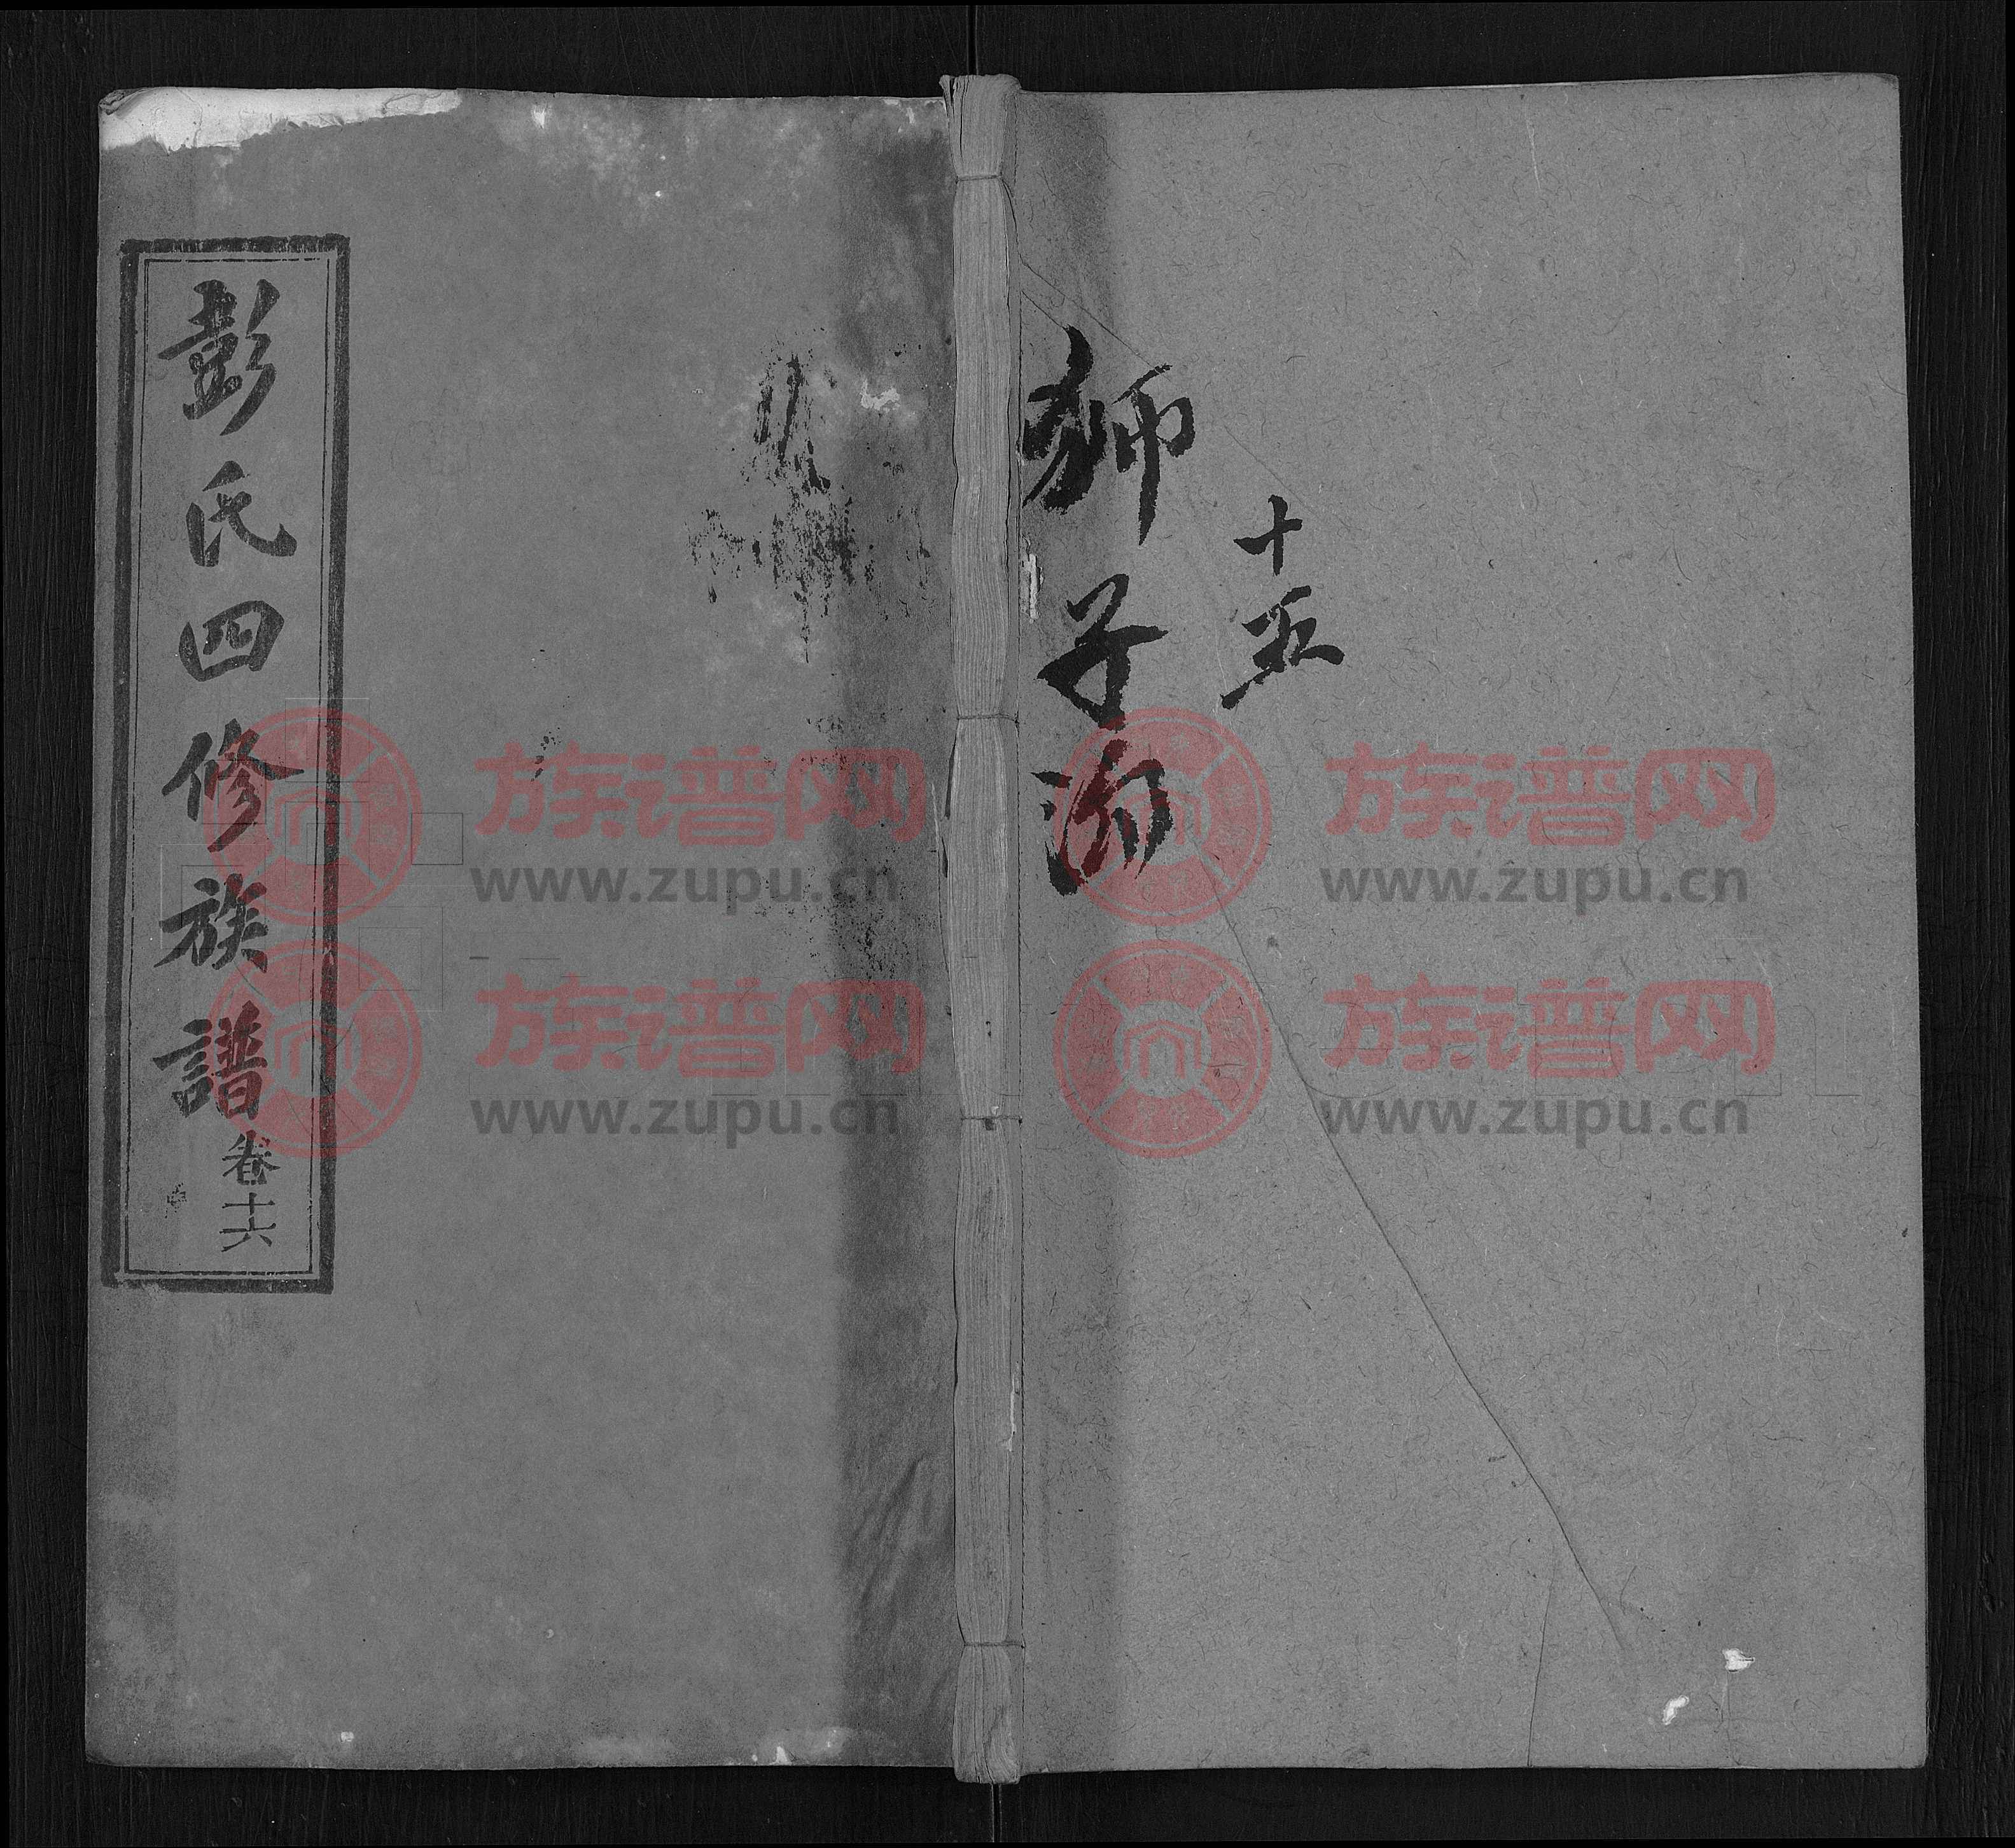 十五
狮子湖
彭氏四修族譜
卷十六
族谱网
www.zupu.cn
族谱网
www.zupu.cn
族谱网
www.zupu.cn
族谱网
www.zupu.cn